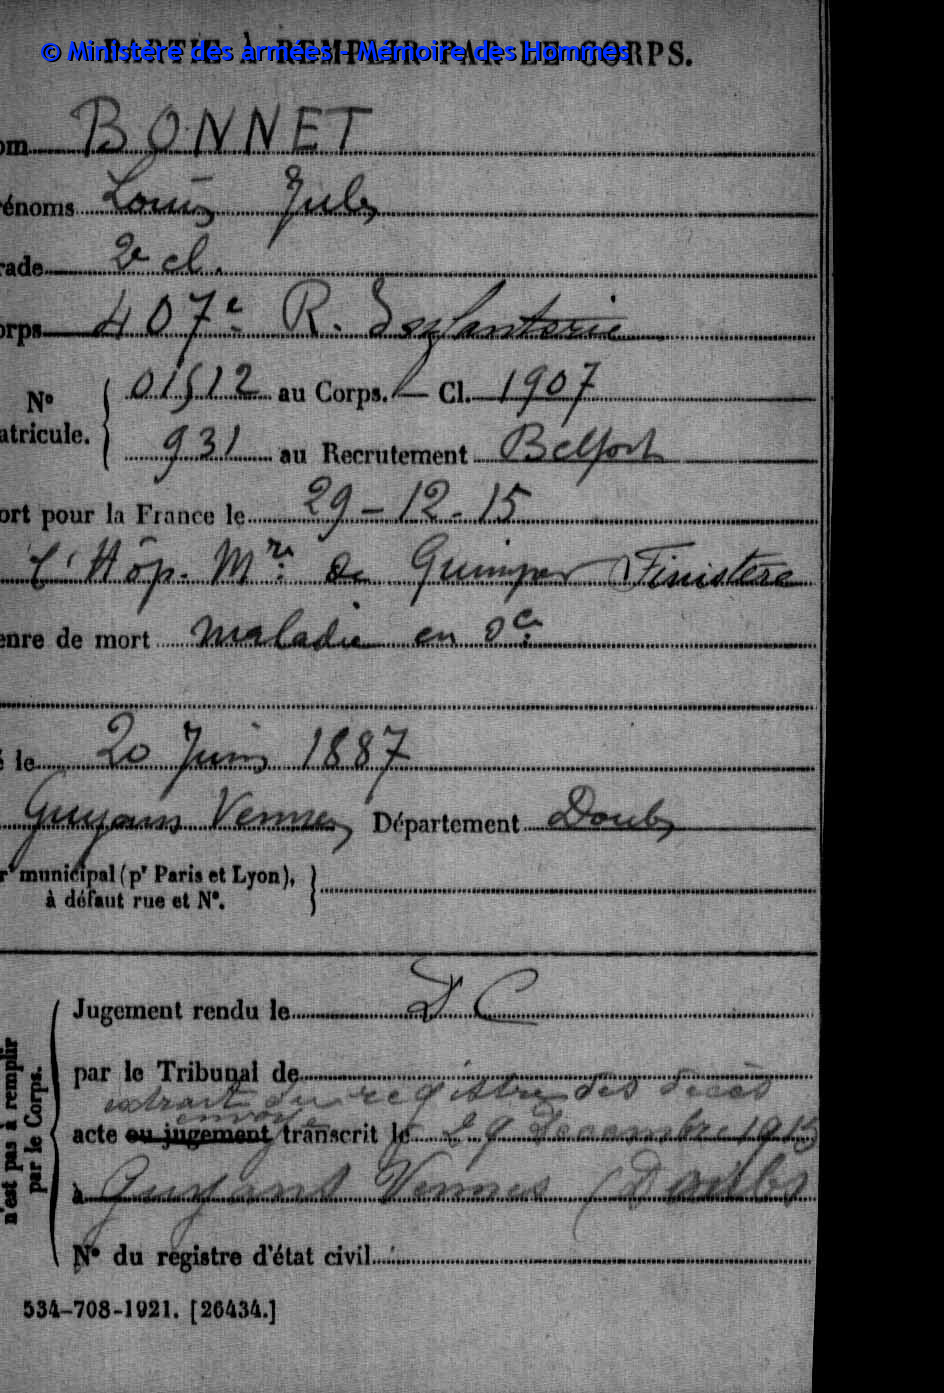 © Ministère des armées - Mémoire des Hommes
PARTIE À REMPLIR PAR LE CORPS.
om BONNET
rénoms Louis Jules
rade 2e cl.
orps 407e R. Infanterie
N° 01512 au Corps. — Cl. 1907
atricule. 931 au Recrutement Belfort
ort pour la France le 29-12-15
l'Hôp. Mre de Quimper Finistère
enre de mort maladie en sce
é le 20 Juin 1887
Guyans Vennes Département Doubs
r municipal (pr Paris et Lyon),
à défaut rue et N°.
n'est pas à remplir
par le Corps.
Jugement rendu le DC
par le Tribunal de
extrait du registre des décès
envoyé
acte ou jugement transcrit le 29 Décembre 1915
à Guyans Vennes (Doubs
N° du registre d'état civil
534-708-1921. [26434.]